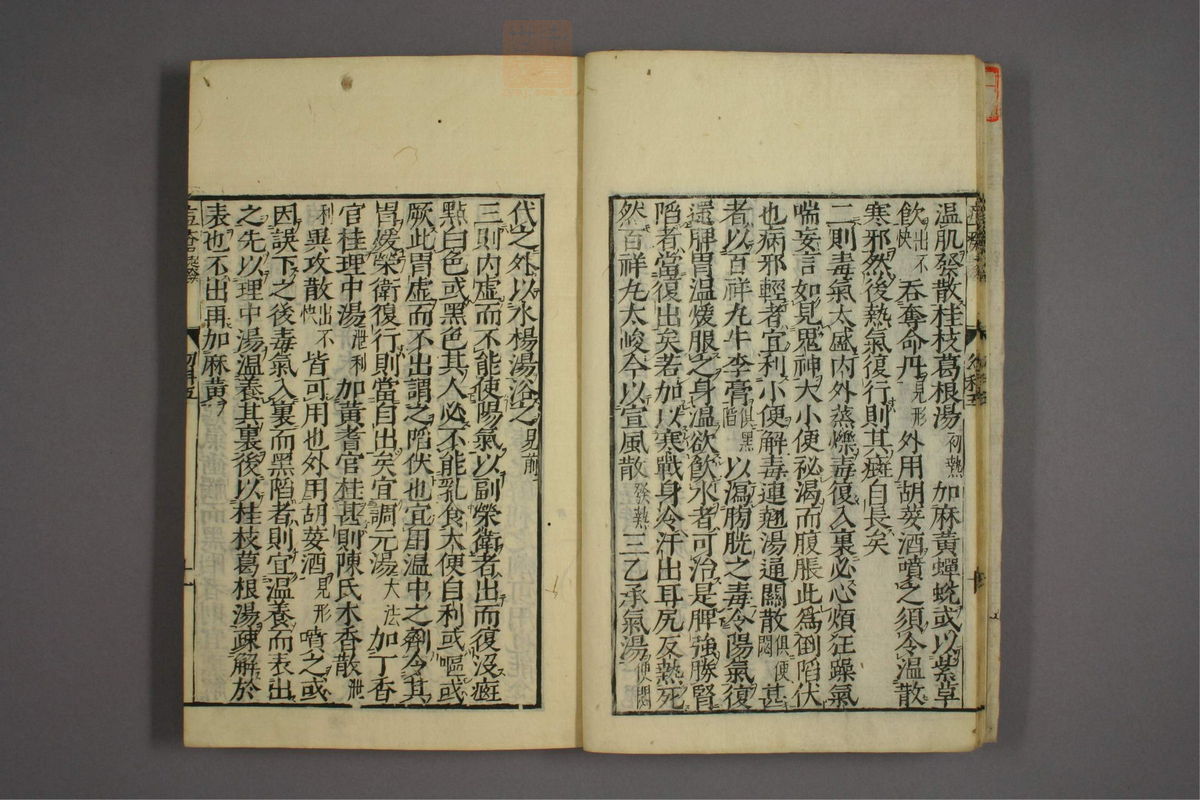 温肌發散桂枝葛根湯初熱加麻黄蟬蛻或以紫草
飲出不快吞奪命丹見形外用胡荽酒噴之須令温散
寒邪然後熱氣復行則其癍自長矣
二則毒氣太盛内外蒸爍毒復入裏必心煩狂躁氣
喘妄言如見鬼神大小便祕渴而腹脹此為倒陷伏
也病邪輕者宜利小便解毒連翹湯通關散俱便閟甚
者以百祥丸牛李膏俱黑陷以瀉膀胱之毒令陽氣復
還脾胃温煖服之身温欲飲水者可治是脾強勝腎
陷者當復出矣若加以寒戰身冷汗出耳尻反熱死
然百祥丸太峻今以宣風散發熱三乙承氣湯便閟
代之外以水楊湯浴之見前
三則内虚而不能使陽氣以副榮衛者出而復沒癍
點白色或黑色其人必不能乳食大便自利或嘔或
厥此胃虚而不出謂之陷伏也宜用温中之劑令其
胃煖榮衛復行則當自出矣宜調元湯大法加丁香
官桂理中湯泄利加黄耆官桂甚則陳氏木香散泄
利異攻散出不快皆可用也外用胡荽酒見形噴之或
因誤下之後毒氣入裏而黑陷者則宜温養而表出
之先以理中湯温養其裏後以桂枝葛根湯疎解於
表也不出再加麻黄